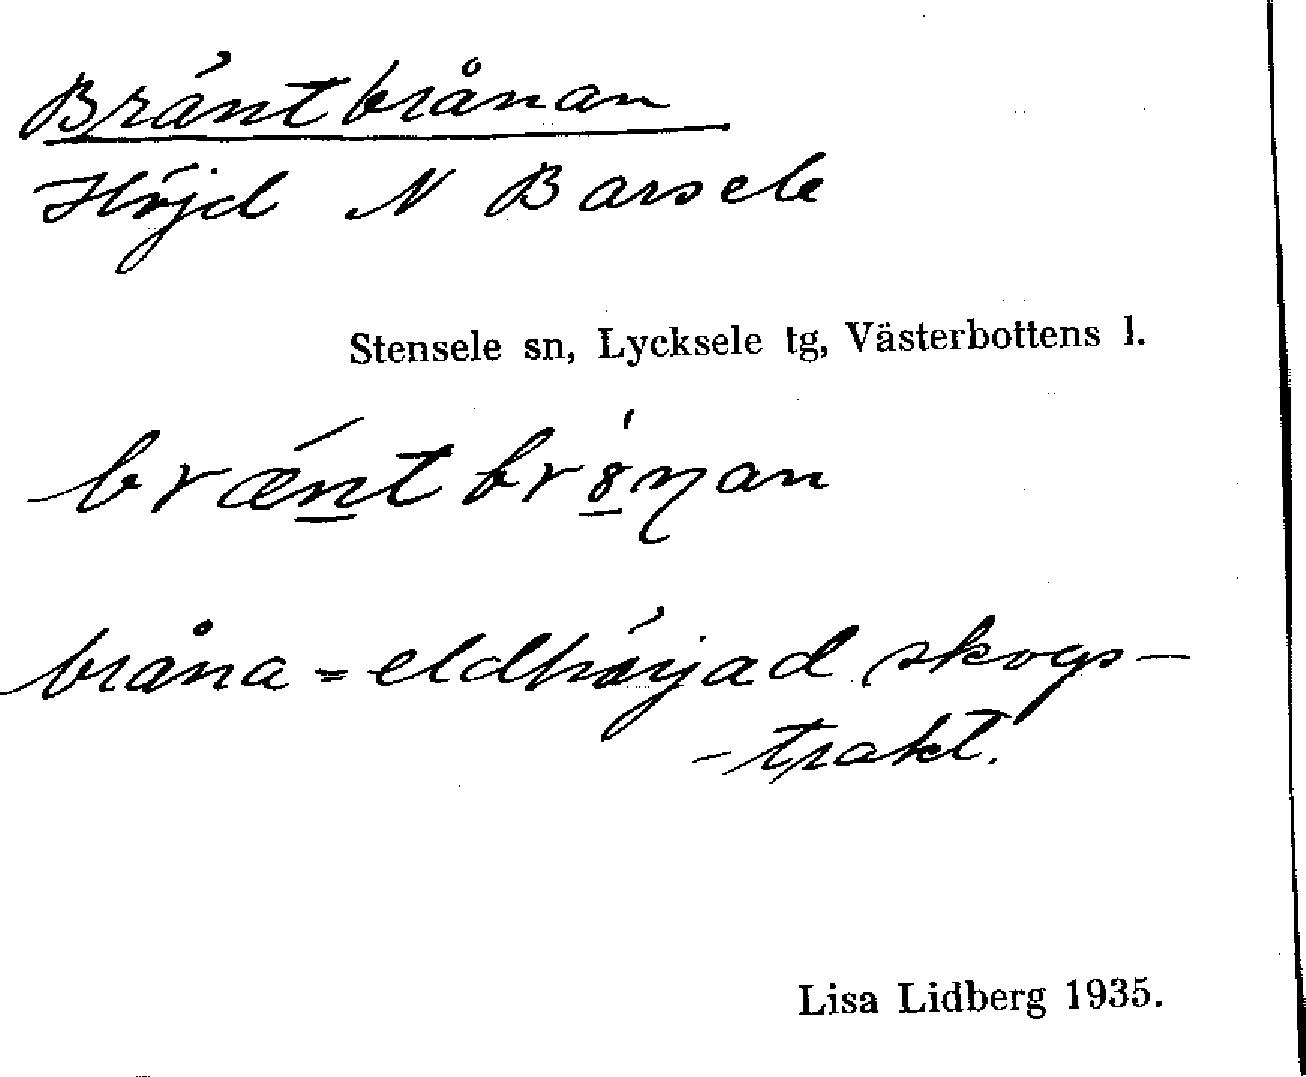 Bräntbrånan
Höjd N Barsele
Stensele sn, Lycksele tg, Västerbottens l.
brǽnt br8́ŋan
bråna = eldhärjad skogs-
-trakt.
Lisa Lidberg 1935.